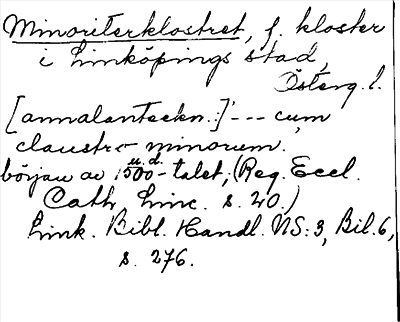 Minoriterklostret, f. kloster
i Linköpings stad,
Österg. l.
[annalanteckn.:]' --- cum
claustro minorum.
början av 1500-talet, (Reg. Eccl.
u. d.
Cath, Linc. s. 20.)
Link. Bibl. Handl. NS: 3, Bil. 6,
s. 276.